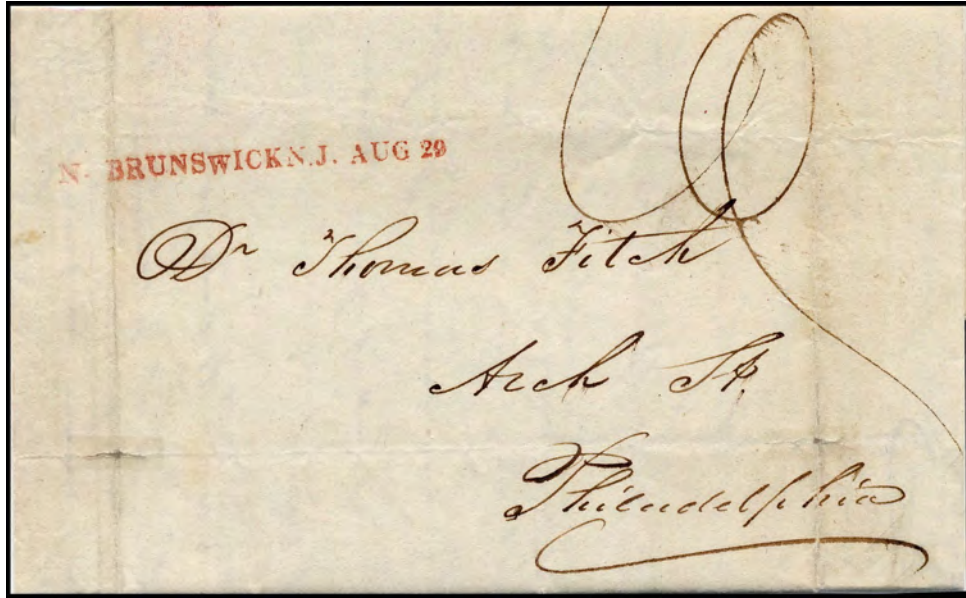 10
N. BRUNSWICK N.J. AUG 29
Dr Thomas Fitch
Arch St.
Philadelphia